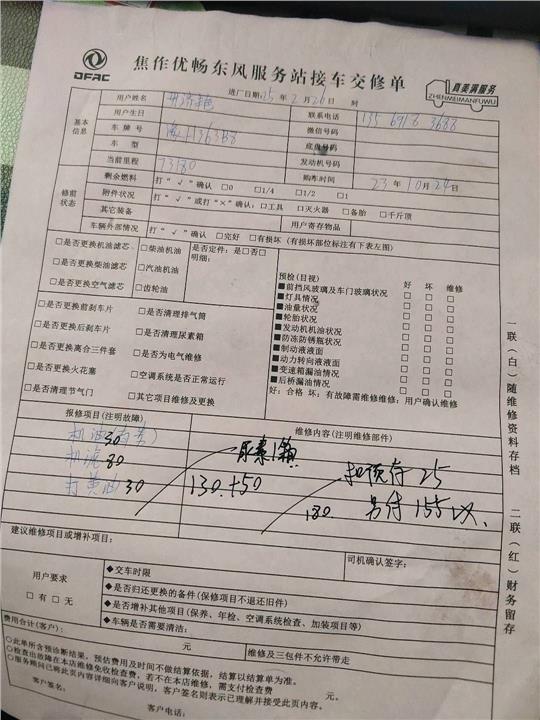 DFAC
焦作优畅东风服务站接车交修单
真美满服务
ZHENMEIMANFUWU
进厂日期:25年 2月 26日 时
基本信息
用户姓名
联系电话
用户生日
微信号码
车牌号
底盘号码
车型
发动机号码
当前里程 73180
购车时间 23年 10月 24日
修前状态
剩余燃料 打“√”确认 □0 □1/4 □1/2 □1
附件状况 打“√”或打“×”确认:□工具 □灭火器 □备胎 □千斤顶
其它装备 用户寄存物品
车辆外部情况 打“√”确认 □完好 □有损坏(有损坏部位标注有下表左图)
□是否更换机油滤芯 □柴油机油 是否定件:是□否□
明细:
□是否更换柴油滤芯 □汽油机油
□是否更换空气滤芯 □齿轮油
□是否更换前刹车片 □是否清理排气筒
□是否更换后刹车片 □是否清理尿素箱
□是否更换离合三件套 □是否为电气维修
□是否更换火花塞 □空调系统是否正常运行
□是否清理节气门 □其它项目维修及更换
预检(目视) 好 坏 维修
■前挡风玻璃及车门玻璃状况
■灯具情况
■油量状况
■轮胎状况
■发动机机油状况
■防冻防锈瓶状况
■制动液液面
■动力转向液液面
■变速箱漏油情况
■后桥漏油情况
好:合格 坏:有故障需维修维修:用户确认维修
报修项目(注明故障)
维修内容(注明维修部件)
机油 30
机滤 80
打黄油 30
尿素1箱
130+50
180
扣预存 25
另付 155
建议维修项目或增补项目:
司机确认签字:
用户要求
□有 □无
◆交车时限
◆是否归还更换的备件(保修项目不退还旧件)
◆是否增补其他项目(保养、年检、空调系统检查、加装项目等)
◆车辆是否需要清洁:
费用合计(客户): 元
维修及三包件不允许带走
○此单所含预诊断结果,预估费用及时间不做结算依据,结算以结算单为准。
○检查出故障在本店维修免收检查费,若不在本店维修,需支付检查费 元。
○服务顾问已将此页内容详细向客户说明,客户签名则表示已理解并接受此页内容。
客户签名:
客户电话:
一联(白)随维修资料存档
二联(红)财务留存